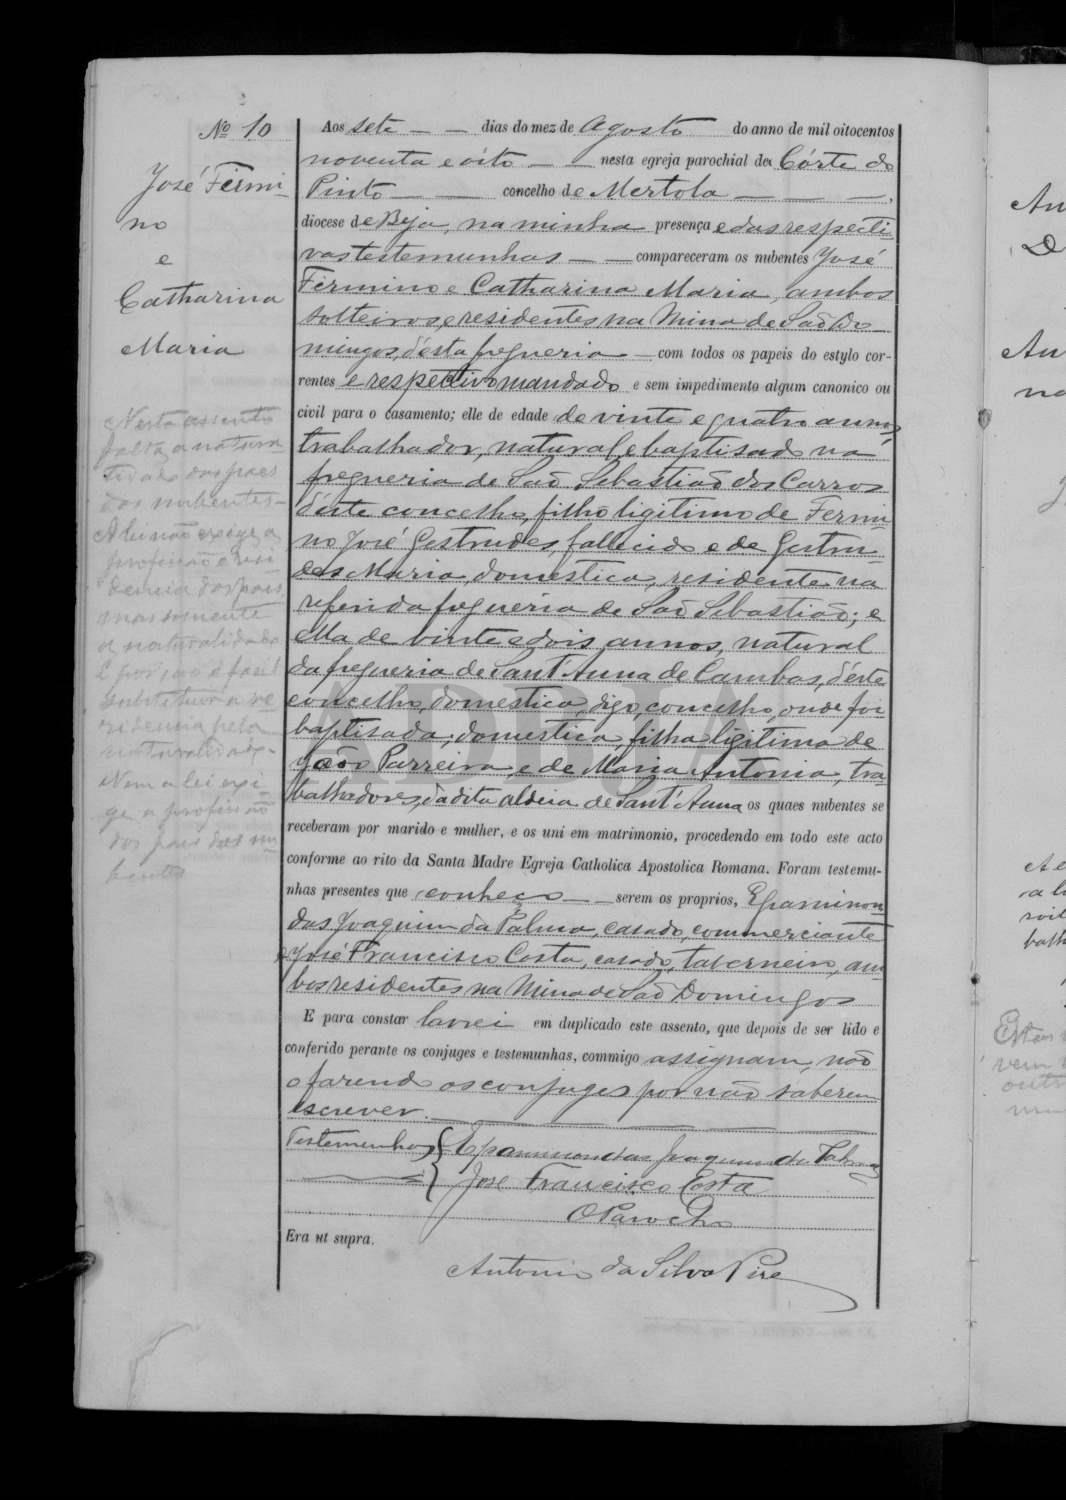 Nº 10
José Fermi-
no
e
Catharina
Maria
Neste assento
falta a natura
lidade dos paes
dos nubentes-
A lei não exige a
profissão e resi-
dencia dos paes,
mas somente
a naturalidade
E por isso é facil
substituir a re
sidencia pela
naturalidade-
Nem a lei exi-
ge a profissão
dos paes dos nu
bentes
Aos sete — — dias do mez de Agosto do anno de mil oitocentos
noventa e oito — — nesta egreja parochial de Córte do
Pinto — — concelho de Mertola — — —,
diocese de Beja, na minha presença e das respecti-
vas testemunhas — — compareceram os nubentes José
Fermino e Catharina Maria, ambos
solteiros, e residentes na Mina de São Do-
mingos, d'ésta fregueria — com todos os papeis do estylo cor-
rentes e respectivo mandado e sem impedimento algum canonico ou
civil para o casamento; elle de edade de vinte e quatro annos
trabalhador, natural e baptisado na
fregueria de São Sebastião dos Carros
d'éste concelho, filho ligitimo de Fermi
no José Gestrudes, fallecido e de Gertru-
des Maria, domestica, residente na
referida fregueria de São Sebastião; e
ella de vinte e dois annos, natural
da fregueria de Sant'Anna de Cambas, d'éste
concelho, domestica, digo, concelho, onde foi
baptisada, domestica, filha ligitima de
João Parreira, e de Maria Antonia, tra
balhadores, da dita aldeia de Sant'Anna os quaes nubentes se
receberam por marido e mulher, e os uni em matrimonio, procedendo em todo este acto
conforme ao rito da Santa Madre Egreja Catholica Apostolica Romana. Foram testemu-
nhas presentes que conheço — — serem os proprios, Epaminon
das Joaquim da Palma, casado, commerciante
José Francisco Costa, casado, taverneiro, am
bos residentes na Mina de São Domingos
E para constar lavrei em duplicado este assento, que depois de ser lido e
conferido perante os conjuges e testemunhas, commigo assignam, não
o farendo os conjuges por não saberem
escrever.
Testemunhas { Epaminondas Joaquim da Palma
José Francisco Costa
O Parocho
Era ut supra.
Antonio da Silva Pire
ADBJA